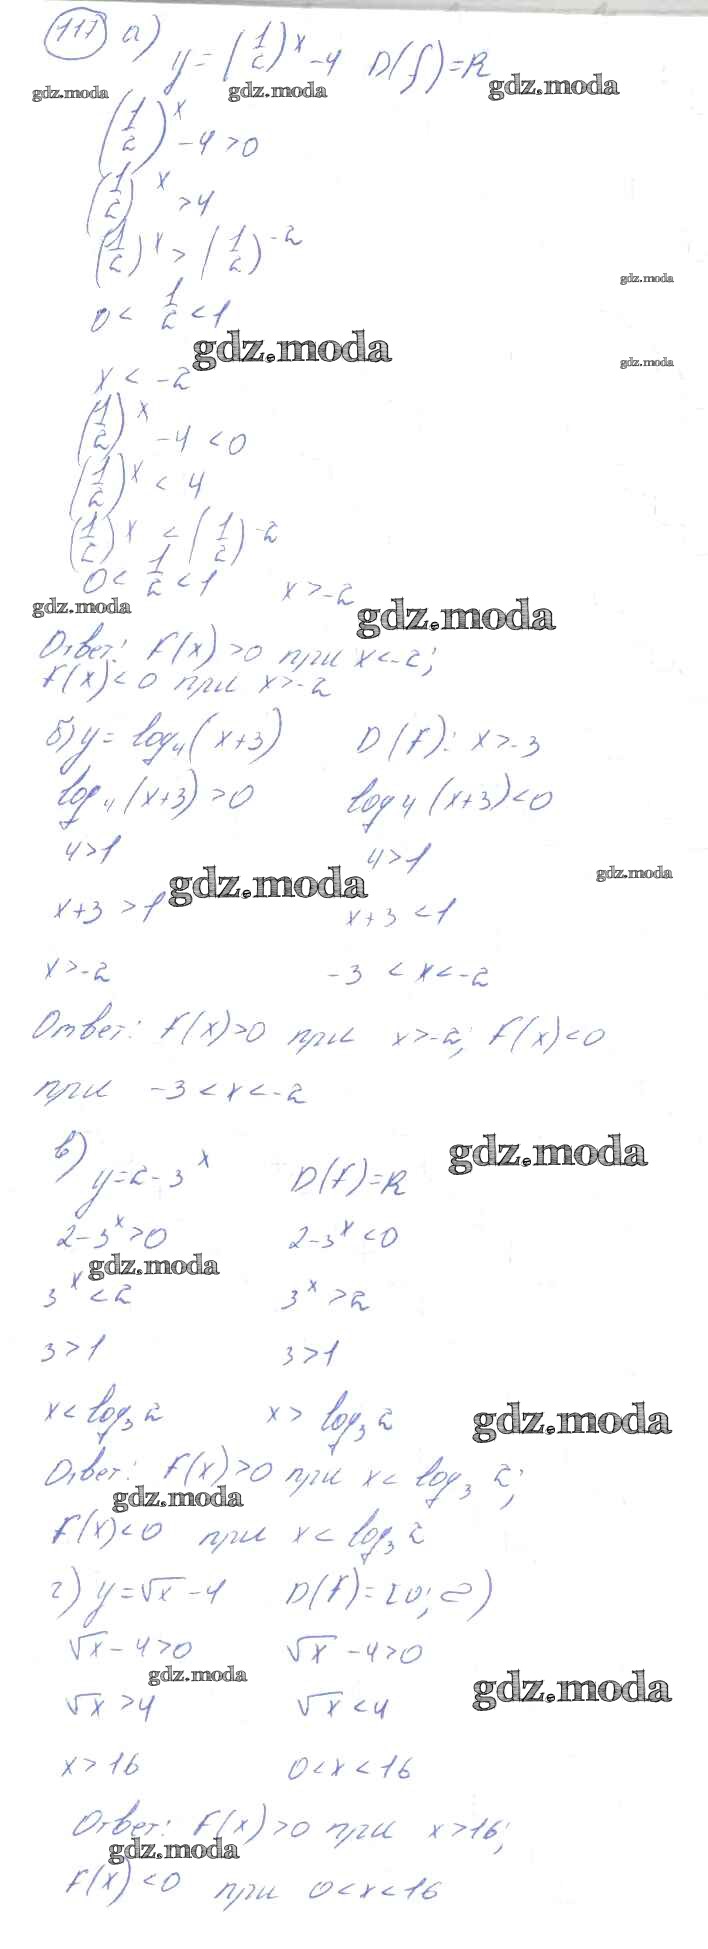 111 а) y = (1/2)^x - 4 D(f) = R
gdz.moda gdz.moda gdz.moda
(1/2)^x - 4 > 0
(1/2)^x > 4
(1/2)^x > (1/2)^-2
gdz.moda
0 < 1/2 < 1
gdz.moda
gdz.moda
x < -2
(1/2)^x - 4 < 0
(1/2)^x < 4
(1/2)^x < (1/2)^-2
0 < 1/2 < 1 x > -2
gdz.moda gdz.moda
Ответ: F(x) > 0 при x < -2;
F(x) < 0 при x > -2
б) y = log₄(x+3) D(F): x > -3
log₄(x+3) > 0 log₄(x+3) < 0
4 > 1 4 > 1
gdz.moda gdz.moda
x+3 > 1 x+3 < 1
x > -2 -3 < x < -2
Ответ: F(x) > 0 при x > -2; F(x) < 0
при -3 < x < -2
в) y = 2 - 3^x D(F) = R
gdz.moda
2 - 3^x > 0 2 - 3^x < 0
gdz.moda
3^x < 2 3^x > 2
3 > 1 3 > 1
x < log₃ 2 x > log₃ 2
gdz.moda
Ответ: F(x) > 0 при x < log₃ 2;
gdz.moda
F(x) < 0 при x < log₃ 2
г) y = √x - 4 D(F) = [0; ∞)
√x - 4 > 0 √x - 4 > 0
gdz.moda gdz.moda
√x > 4 √x < 4
x > 16 0 < x < 16
Ответ: F(x) > 0 при x > 16;
gdz.moda
F(x) < 0 при 0 < x < 16